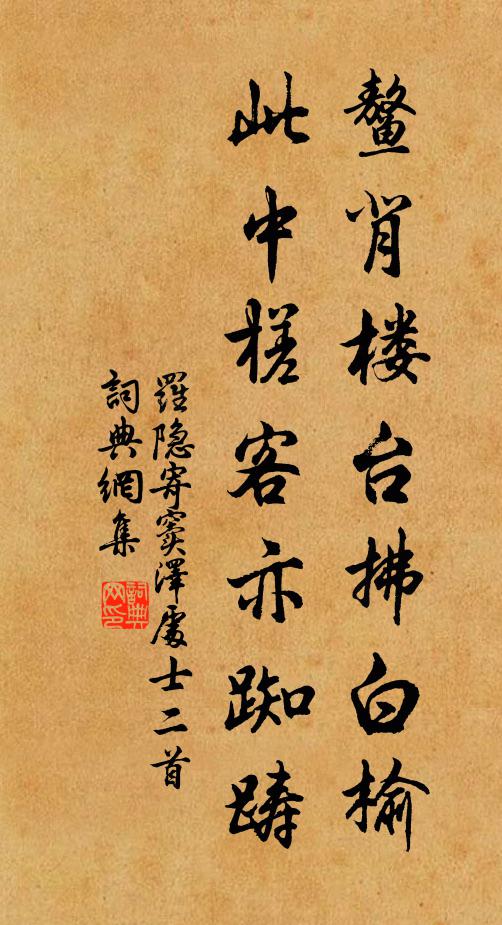 鳌背楼台拂白榆
此中槎客亦踟蹰
羅隐寄窦澤處士二首
詞典網集
詞典网印